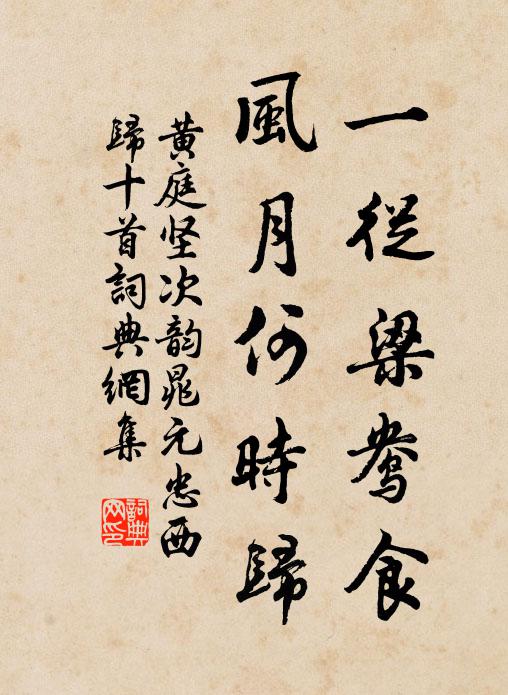 一從梁鴦食
風月何時歸
黄庭坚次韵晁元忠西
歸十首詞典網集
詞典网印